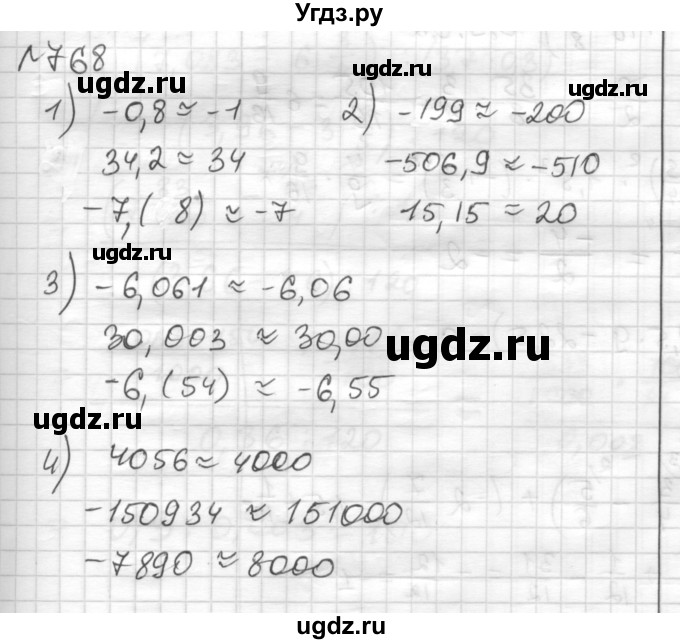 Угдз.ру
№768
ugdz.ru
ugdz.ru
ugdz.ru
1) -0,8 ≈ -1
2) -199 ≈ -200
34,2 ≈ 34
-506,9 ≈ -510
-7,( 8) ≈ -7
15,15 ≈ 20
ugdz.ru
3) -6,061 ≈ -6,06
30,003 ≈ 30,00
ugdz.ru
-6,(54) ≈ -6,55
ugdz.ru
4) 4056 ≈ 4000
-150934 ≈ 151000
-7890 ≈ 8000
ugdz.ru
ugdz.ru